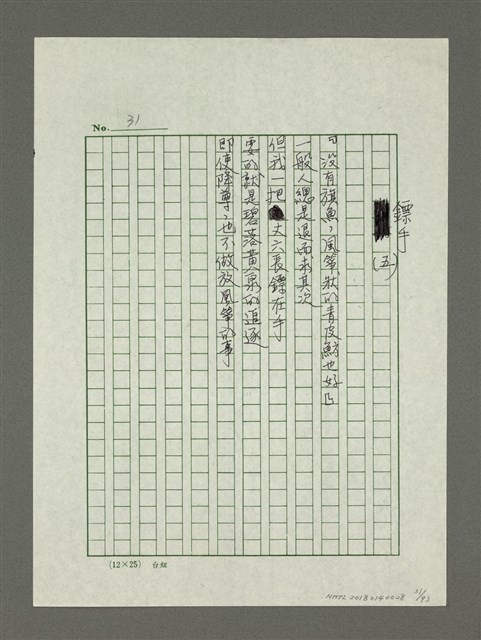 No. 31
鏢手
(五)
「沒有旗魚，風箏狀的青皮魟也好」
一般人總是退而求其次
但我一把丈六長鏢在手
要的就是碧落黃泉的追逐
即使降尊，也不做放風箏的事
(12×25) 台組
NMTL 20180140028 31/93